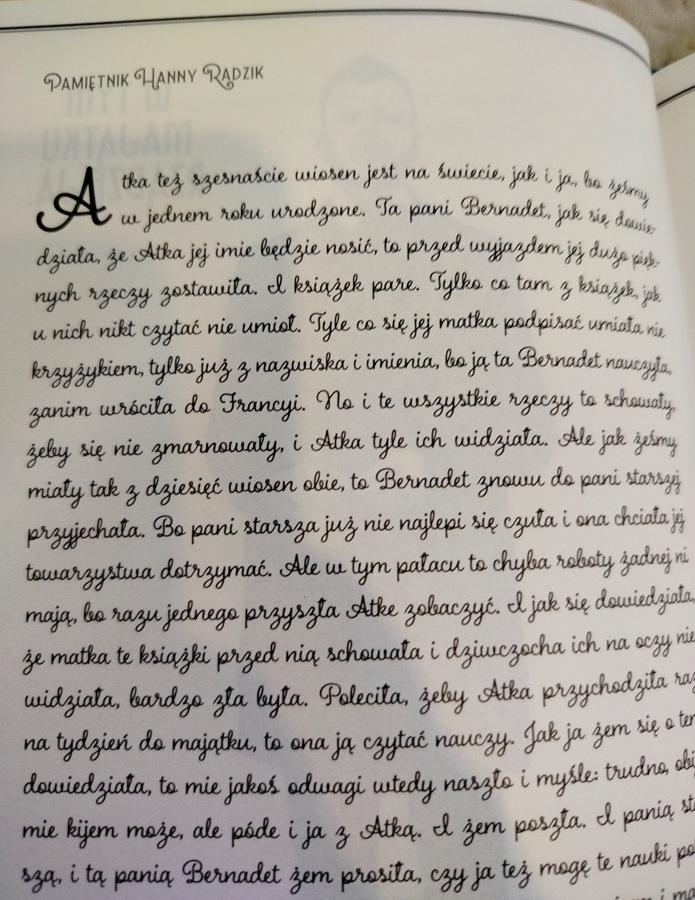 Pamiętnik Hanny Radzik
Atka też szesnaście wiosen jest na świecie, jak i ja, bo żeśmy
w jednem roku urodzone. Ta pani Bernadet, jak się dowie-
działa, że Atka jej imie będzie nosić, to przed wyjazdem jej dużo pięk-
nych rzeczy zostawiła. I książek pare. Tylko co tam z książek, jak
u nich nikt czytać nie umioł. Tyle co się jej matka podpisać umiała nie
krzyżykiem, tylko już z nazwiska i imienia, bo ją ta Bernadet nauczyła,
zanim wróciła do Francyi. No i te wszystkie rzeczy to schowały,
żeby się nie zmarnowały, i Atka tyle ich widziała. Ale jak żeśmy
miały tak z dziesięć wiosen obie, to Bernadet znowu do pani starszej
przyjechała. Bo pani starsza już nie najlepi się czuła i ona chciała jej
towarzystwa dotrzymać. Ale w tym pałacu to chyba roboty żadnej ni
mają, bo razu jednego przyszła Atke zobaczyć. I jak się dowiedziała,
że matka te książki przed nią schowała i dziwczocha ich na oczy nie
widziała, bardzo zła była. Poleciła, żeby Atka przychodziła raz
na tydzień do majątku, to ona ją czytać nauczy. Jak ja żem się o
dowiedziała, to mie jakoś odwagi wtedy naszło i myśle: trudno,
mie kijem może, ale póde i ja z Atką. I żem poszła. I panią
szą, i tą panią Bernadet żem prosiła, czy ja też mogę te nauki